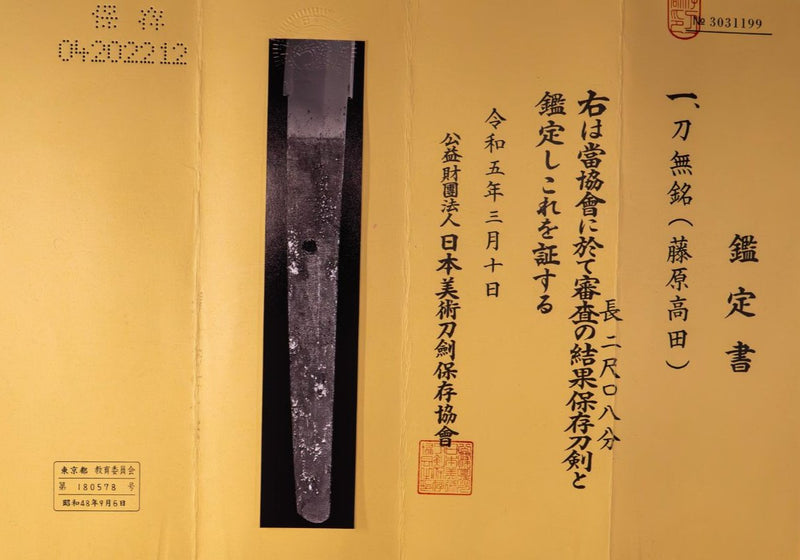 № 3031199
鑑定書
一、刀無銘（藤原高田）
長 二尺〇八分
右は當協會に於て審査の結果保存刀剣と
鑑定しこれを証する
令和五年三月十日
公益財團法人 日本美術刀劍保存協會
保存
04202212
東京都 教育委員会
第 180578 号
昭和48年9月6日